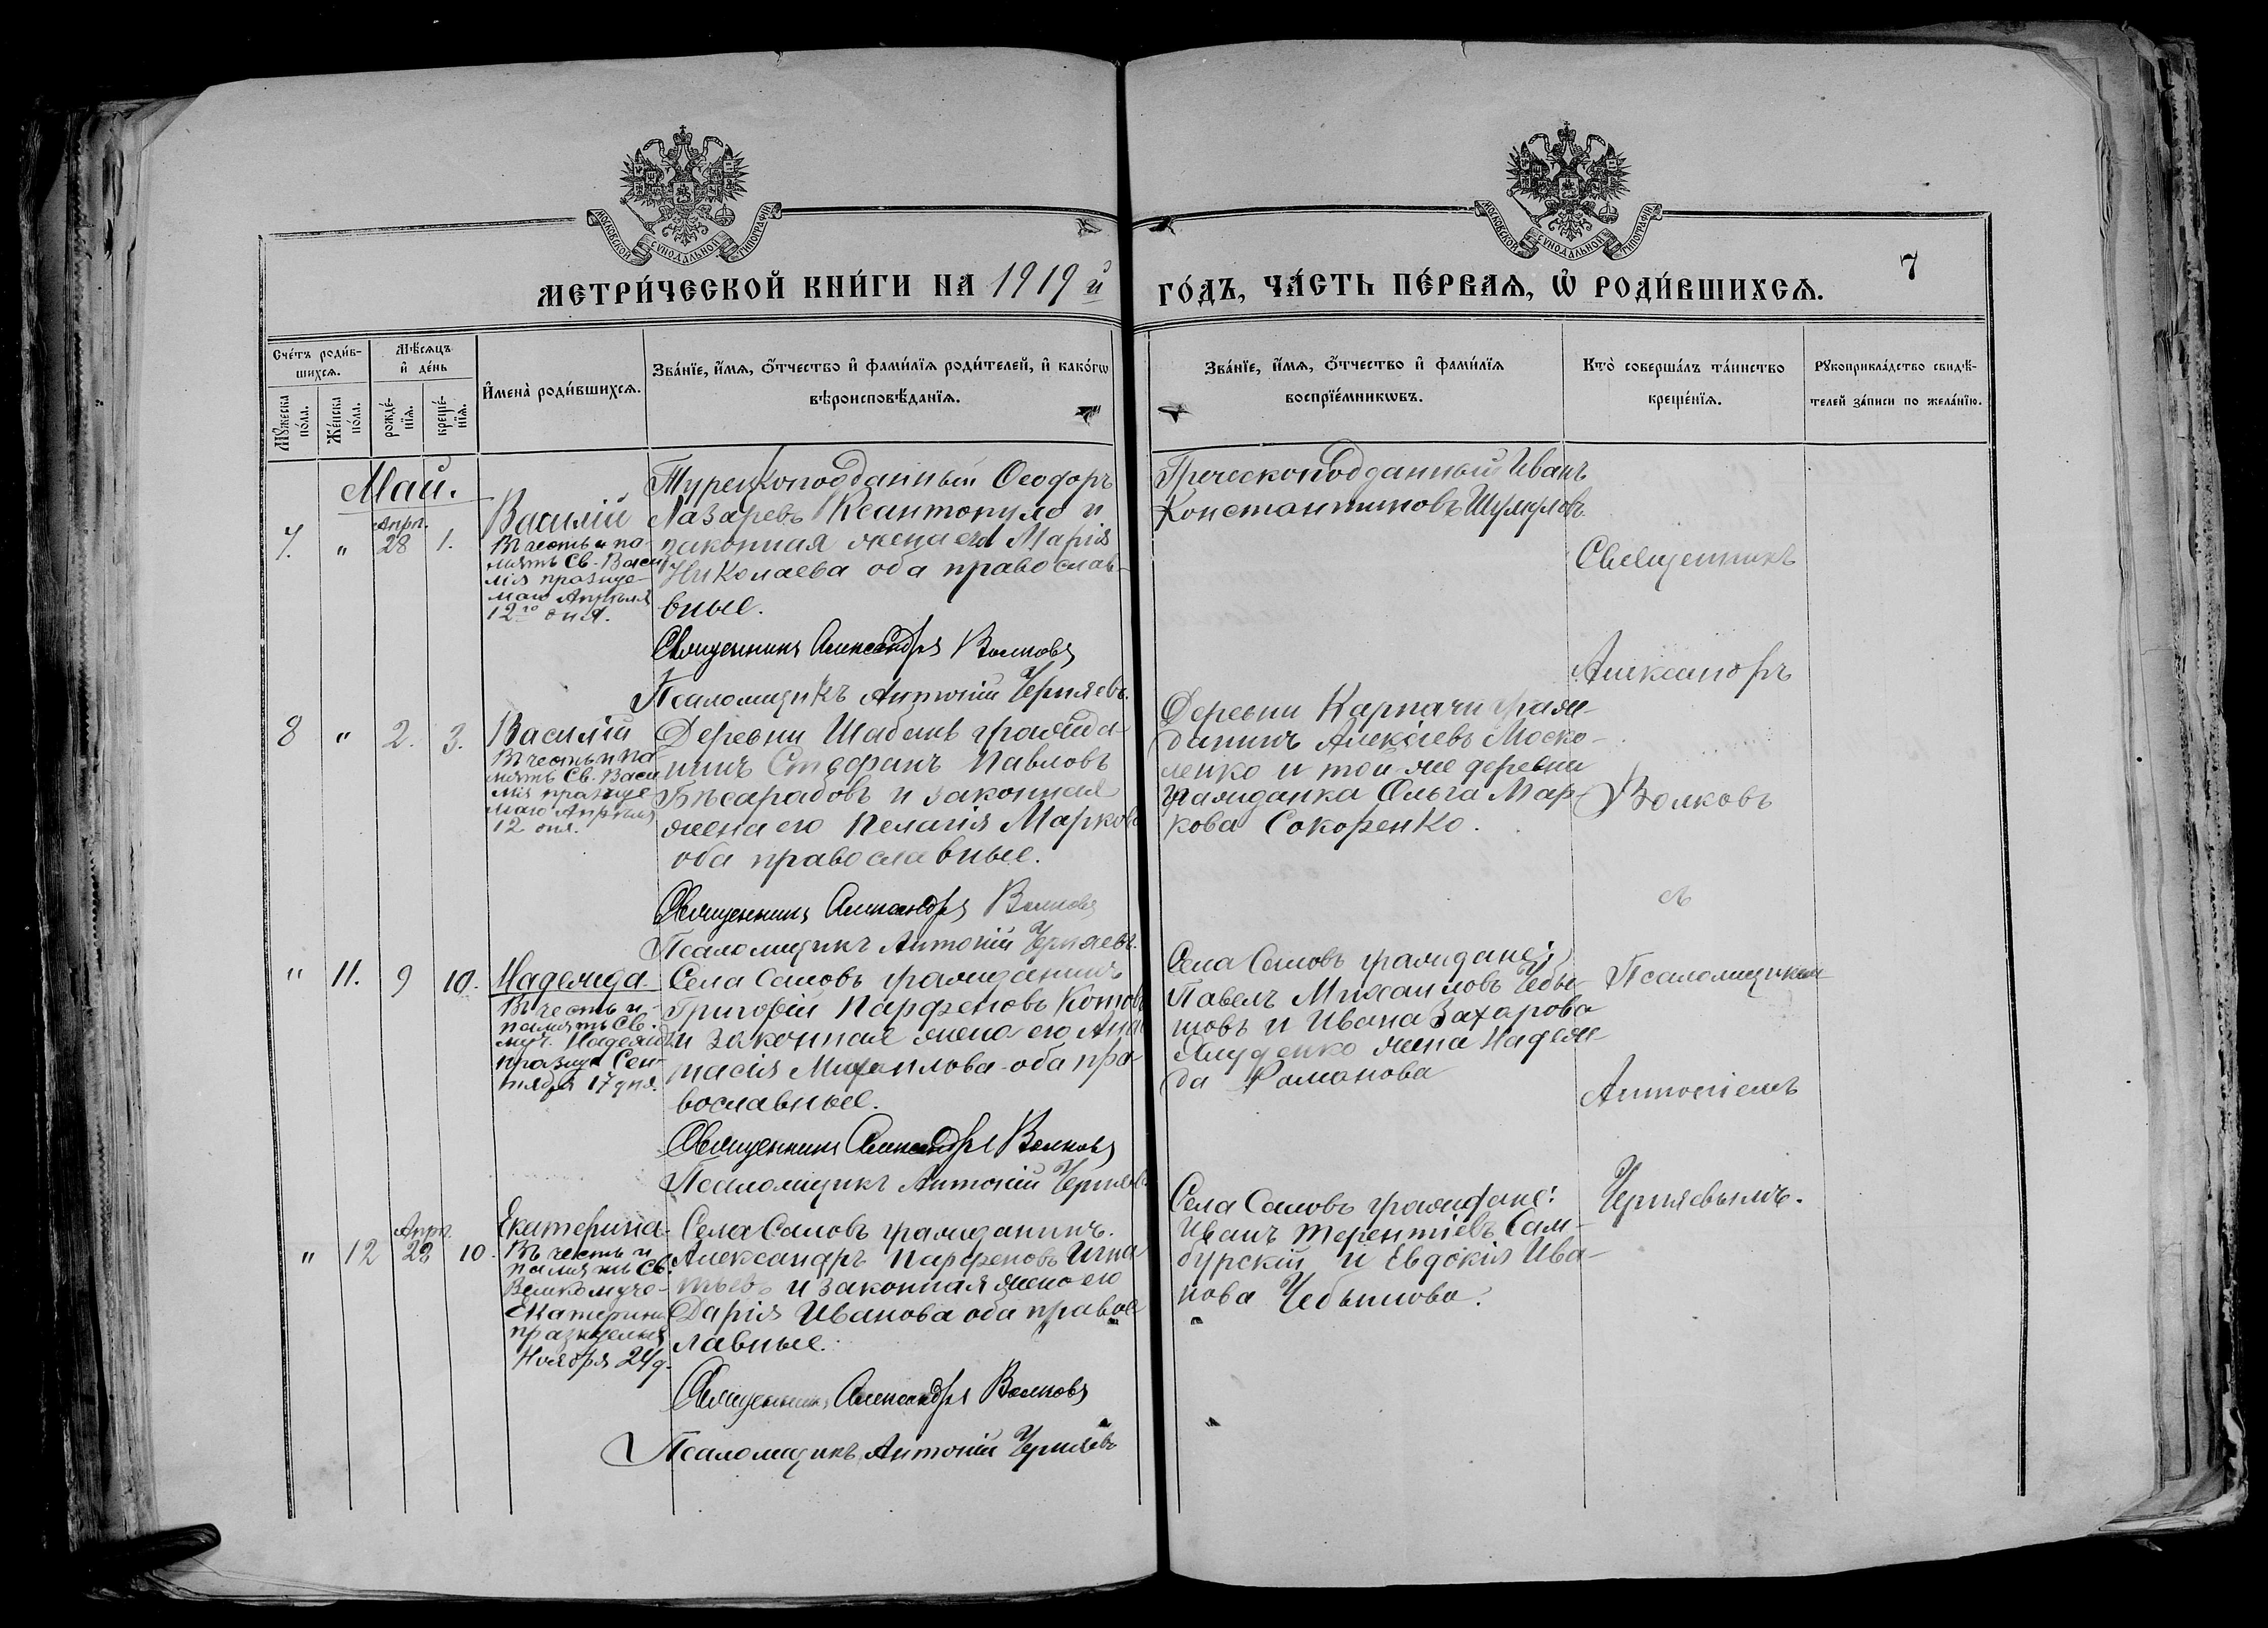 МОСКОВСКОЙ СѴНОДАЛЬНОЙ ТИПОГРАФІИ
МОСКОВСКОЙ СѴНОДАЛЬНОЙ ТИПОГРАФІИ
7
МЕТРИ́ЧЕСКОЙ КНИ́ГИ НА 1919 й
ГО́ДЪ, ЧА́СТЬ ПЕ́РВАѦ, Ѡ҆ РОДИ́ВШИХСѦ.
Сче́тъ роди́в-
шихсѧ.
Мꙋжеска по́ла.
Же́нска по́ла.
Мѣ́сѧцъ и҆ де́нь
рожде́-
нїѧ.
креще́-
нїѧ.
И҆мена̀ роди́вшихсѧ.
Зва́нїе, и҆́мѧ, ѻ҆́тчество и҆ фами́лїѧ роди́телей, и҆ како́гѡ
вѣроисповѣ́данїѧ.
Зва́нїе, и҆́мѧ, ѻ҆́тчество и҆ фами́лїѧ
воспрїе́мникѡвъ.
Кто̀ соверша́лъ та́инство
креще́нїѧ.
Рꙋкоприкла́дство свидѣ́-
телей за́писи по жела́нїю.
Май.
7. " Апрл. 28 1.
Василій
Въ честь и па-
мять Св. Васи
лія праздуе-
маго Апрѣля
12го дня.
Турецкоподданный Ѳеодоръ
Лазаревъ Ксантопуло и
законная жена его Марія
Николаева оба православ-
вные.
Священникъ Александръ Волковъ
Псаломщикъ Антоній Черняевъ.
Греческоподданный Иванъ
Константиновъ Шумуловъ.
Священникъ
Александръ
Волковъ
съ
Псаломщикомъ
Антоніемъ
Черняевымъ.
8 " 2. 3.
Василій
Въ честь и па
мять Св. Васи
лія праздуе
маго Апрѣля
12 дня.
Деревни Шабельн гражда-
нинъ Стефанъ Павловъ
Бѣсарабовъ и законная
жена его Пелагія Маркова
оба православные.
Священникъ Александръ Волковъ
Псаломщикъ Антоній Черняевъ.
Деревни Карпачи граж-
данинъ Алексѣевъ Моско-
ленко и той-же деревни
гражданка Ольга Мар-
кова Сокоренко.
" 11. 9 10.
Надежда
Въ честь и
память Св.
муч. Надежды
празд. Сен-
тября 17 дня.
Села Самовъ гражданинъ
Григорій Парфеновъ Котовъ
и законная жена его Ана
тасія Михаилова оба пра-
вославные.
Священникъ Александръ Волковъ
Псаломщикъ Антоній Черняевъ
Села Самовъ граждане:
Павелъ Михаиловъ Чебы-
шовъ и Ивана Захарова
жена Надеж-
да Романова
" 12 Апрл. 28 10.
Екатерина
Въ честь и
память Св.
Великомуче-
Екатерины
празднуемыя
Ноября 24 д.
Села Самовъ гражданинъ.
Александръ Парфеновъ Игна
тьевъ и законная жена его
Дарія Иванова оба правос
лавные.
Священникъ Александръ Волковъ
Псаломщикъ Антоній Черняевъ
Села Самовъ граждане:
Иванъ Терентіевъ Сам-
бурскій и Евдокія Ива-
нова Чебышова.